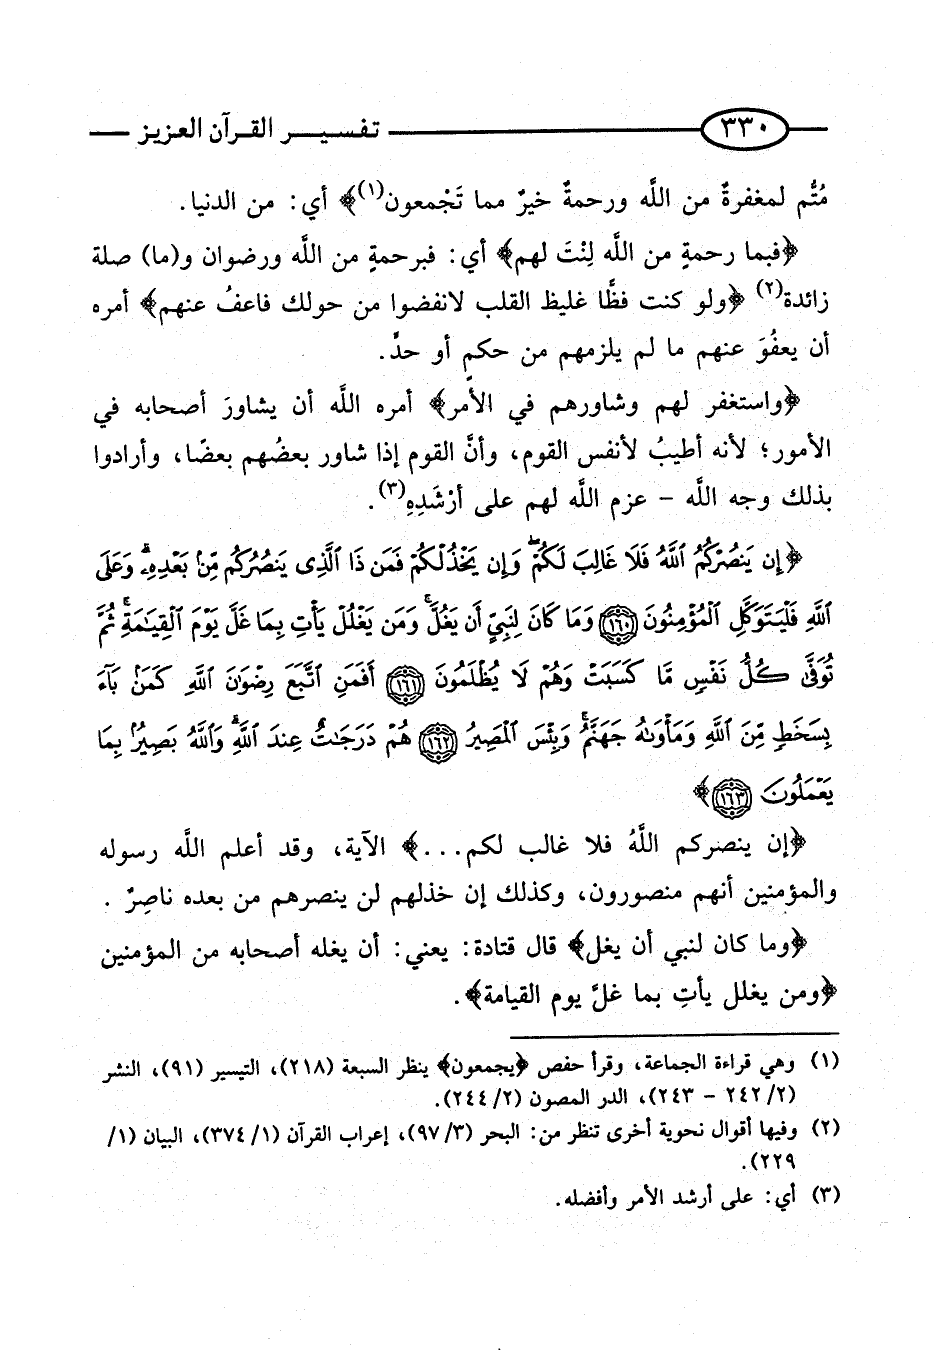 ٣٣٠ تفسير القرآن العزيز
مُتُّم لمغفرةٌ من اللَّه ورحمةٌ خيرٌ مما تَجْمعون(١)﴾ أي: من الدنيا.
﴿فبما رحمةٍ من اللَّه لِنْتَ لهم﴾ أي: فبرحمةٍ من اللَّه ورضوان و(ما) صلة
زائدة(٢) ﴿ولو كنت فظًّا غليظ القلب لانفضوا من حولك فاعفُ عنهم﴾ أمره
أن يعفُوَ عنهم ما لم يلزمهم من حكمٍ أو حدٍّ.
﴿واستغفر لهم وشاورهم في الأمر﴾ أمره اللَّه أن يشاورَ أصحابه في
الأمور؛ لأنه أطيبُ لأنفس القوم، وأنَّ القوم إذا شاور بعضُهم بعضًا، وأرادوا
بذلك وجه اللَّه - عزم اللَّه لهم على أرْشَدِهِ(٣).
﴿إِن يَنصُرْكُمُ ٱللَّهُ فَلَا غَالِبَ لَكُمْ ۖ وَإِن يَخْذُلْكُمْ فَمَن ذَا ٱلَّذِى يَنصُرُكُم مِّنۢ بَعْدِهِۦ ۗ وَعَلَى
ٱللَّهِ فَلْيَتَوَكَّلِ ٱلْمُؤْمِنُونَ ١٦٠ وَمَا كَانَ لِنَبِيٍّ أَن يَغُلَّ ۚ وَمَن يَغْلُلْ يَأْتِ بِمَا غَلَّ يَوْمَ ٱلْقِيَـٰمَةِ ۚ ثُمَّ
تُوَفَّىٰ كُلُّ نَفْسٍ مَّا كَسَبَتْ وَهُمْ لَا يُظْلَمُونَ ١٦١ أَفَمَنِ ٱتَّبَعَ رِضْوَٰنَ ٱللَّهِ كَمَنۢ بَآءَ
بِسَخَطٍ مِّنَ ٱللَّهِ وَمَأْوَىٰهُ جَهَنَّمُ ۚ وَبِئْسَ ٱلْمَصِيرُ ١٦٢ هُمْ دَرَجَـٰتٌ عِندَ ٱللَّهِ ۗ وَٱللَّهُ بَصِيرٌۢ بِمَا
يَعْمَلُونَ ١٦٣﴾
﴿إن ينصركم اللَّهُ فلا غالب لكم...﴾ الآية، وقد أعلم اللَّه رسوله
والمؤمنين أنهم منصورون، وكذلك إن خذلهم لن ينصرهم من بعده ناصِرٌ .
﴿وما كان لنبي أن يغل﴾ قال قتادة: يعني: أن يغله أصحابه من المؤمنين
﴿ومن يغلل يأتِ بما غلَّ يوم القيامة﴾.
(١) وهي قراءة الجماعة، وقرأ حفص ﴿يجمعون﴾ ينظر السبعة (٢١٨)، التيسير (٩١)، النشر
(٢/ ٢٤٢ - ٢٤٣)، الدر المصون (٢/ ٢٤٤).
(٢) وفيها أقوال نحوية أخرى تنظر من: البحر (٣/ ٩٧)، إعراب القرآن (١/ ٣٧٤)، البيان (١/
٢٢٩).
(٣) أي: على أرشد الأمر وأفضله.